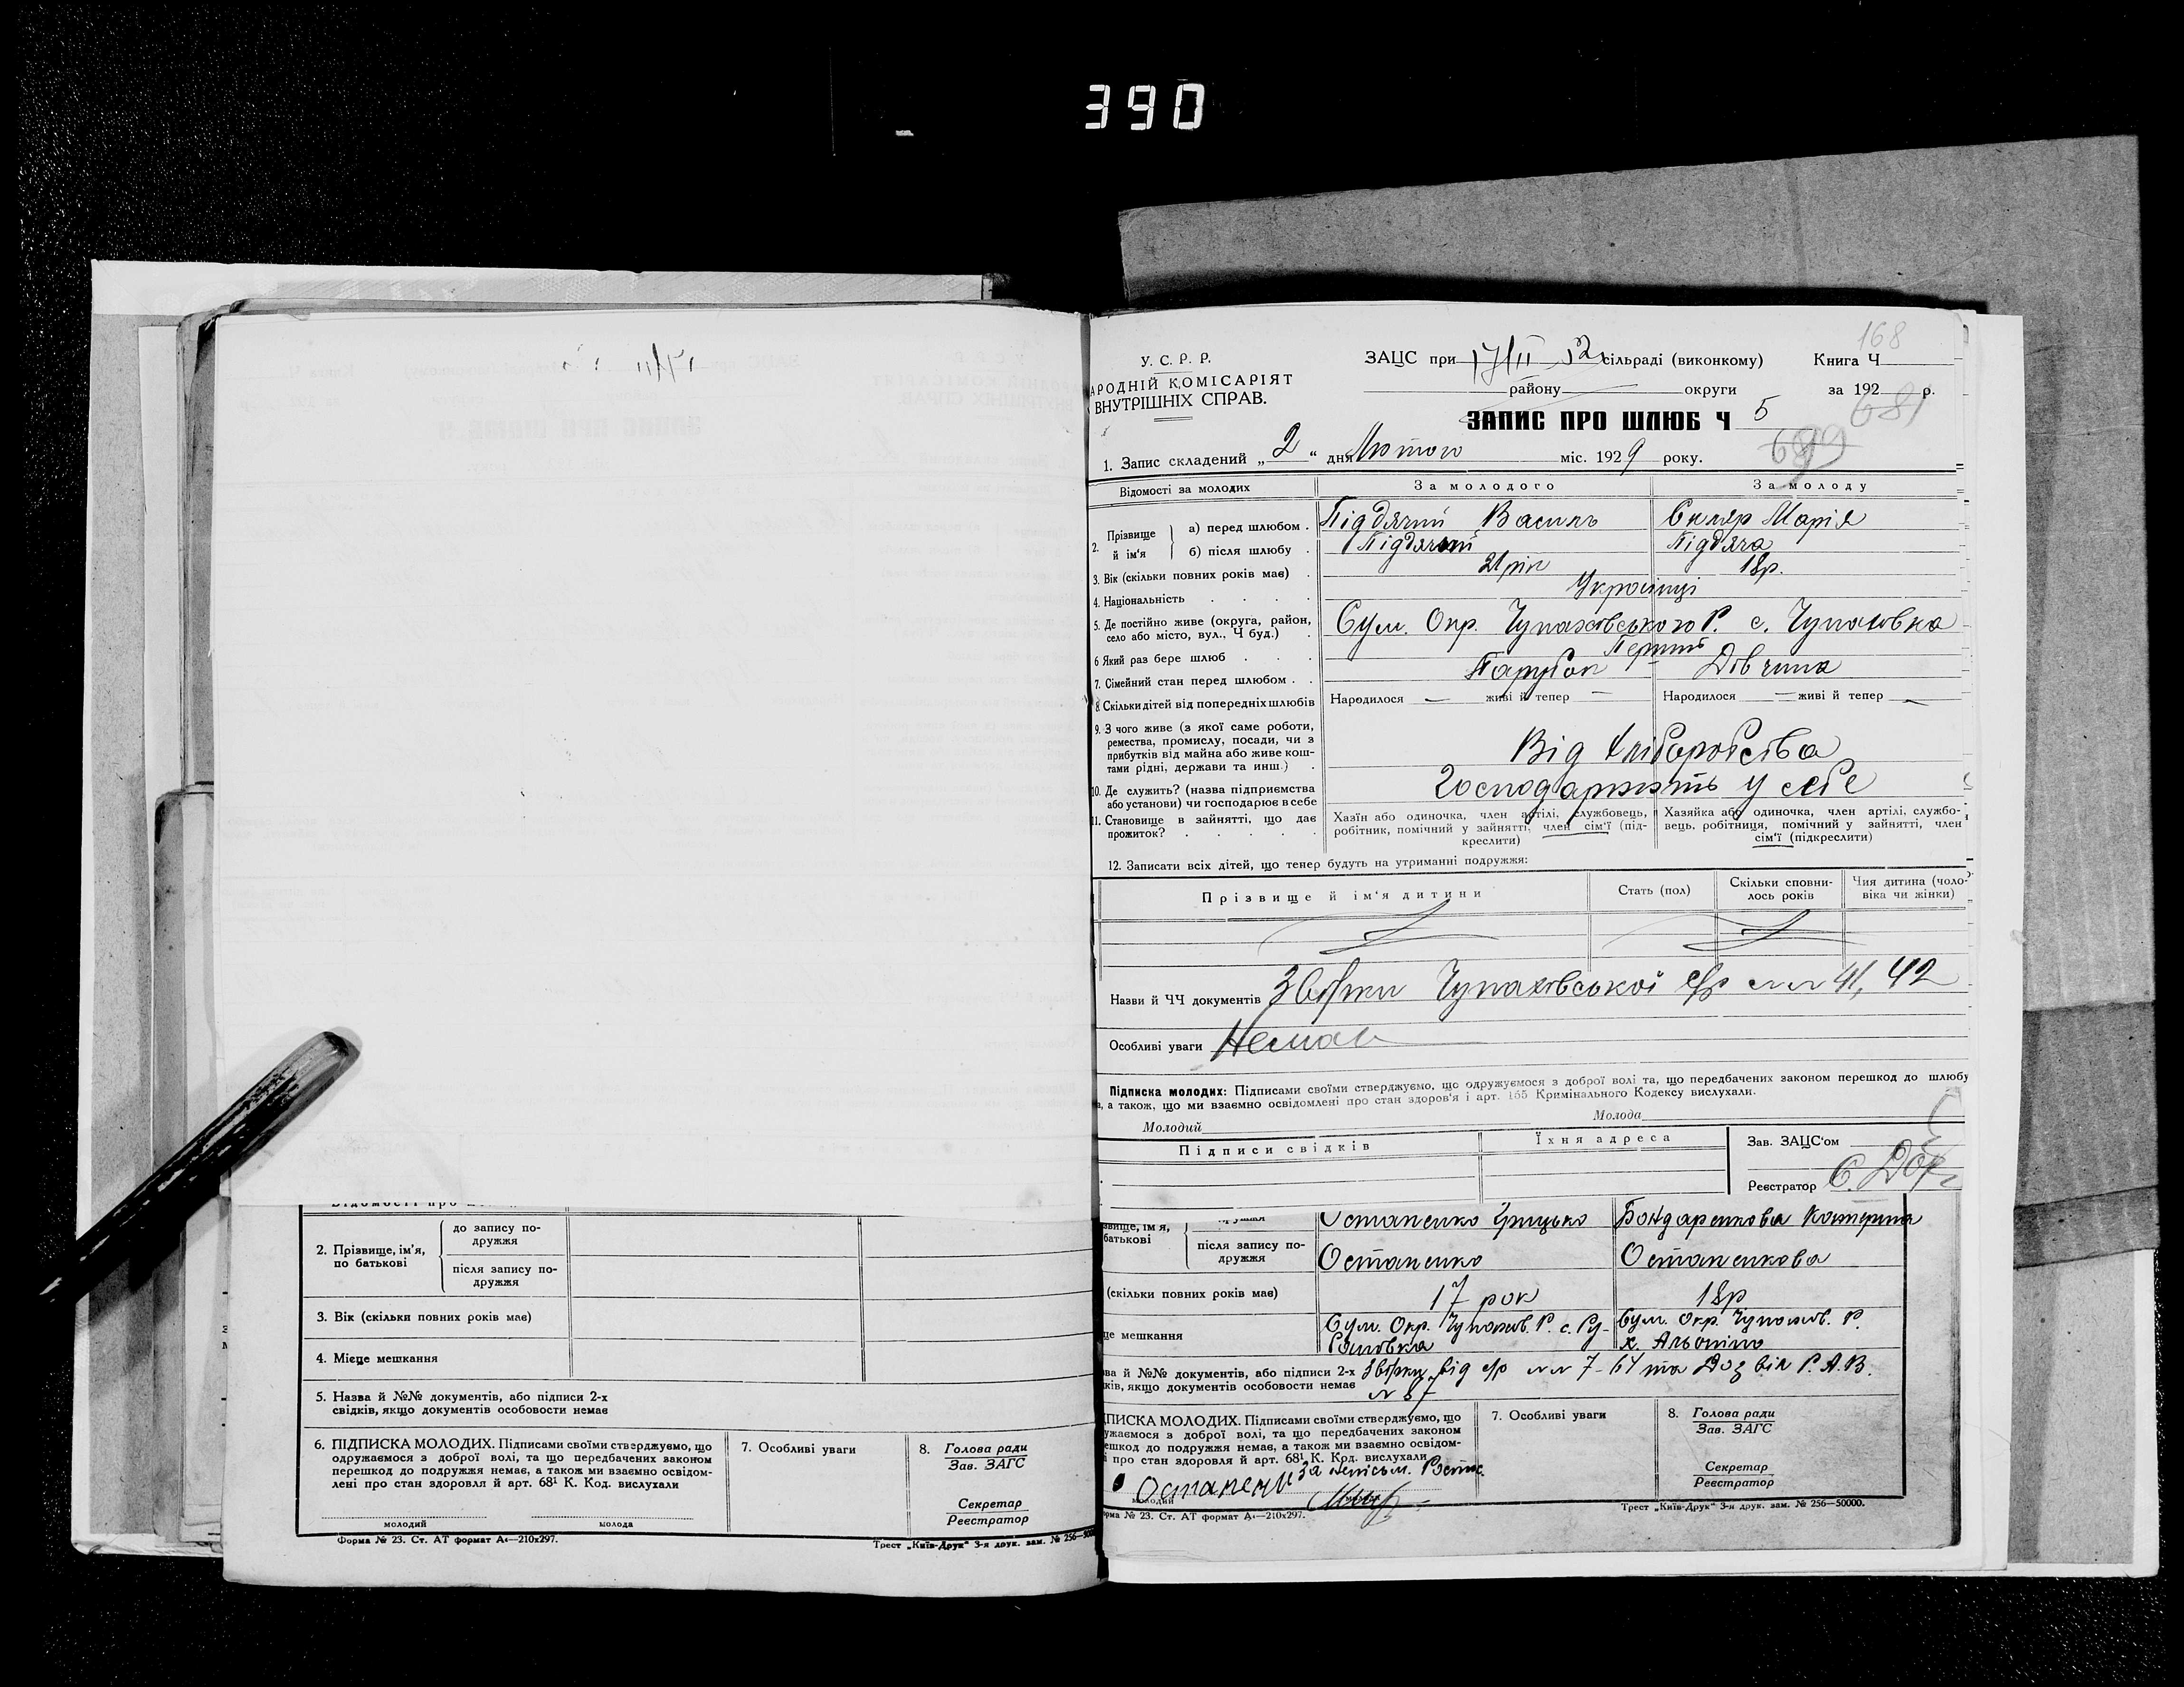 390
168
У. С. Р. Р.
АРОДНІЙ КОМІСАРІЯТ
ВНУТРІШНІХ СПРАВ.
ЗАЦС при 17/II сільраді (виконкому) Книга Ч
району округи за 192 р.
681
ЗАПИС ПРО ШЛЮБ Ч 5
1. Запис складений „ 2 “ дня Лютого міс. 1929 року.
Відомості за молодих За молодого За молоду
2. Прізвище й ім'я а) перед шлюбом . Підячий Василь Скляр Марія
б) після шлюбу . Підячий Підяча
3. Вік (скільки повних років має) . 21 рік 18р.
4. Національність . . . . Українці
5. Де постійно живе (округа, район, село або місто, вул., Ч буд.) . Сум. Окр. Чупахівського Р. с. Чупахівка
6 Який раз бере шлюб . . . Перший
7. Сімейний стан перед шлюбом . . Парубок Дівчина
8. Скільки дітей від попередніх шлюбів Народилося — живі й тепер — Народилося — живі й тепер —
9. З чого живе (з якої саме роботи,
ремества, промислу, посади, чи з
прибутків від майна або живе кош-
тами рідні, держави та инш.) . Від хліборобства
10. Де служить? (назва підприємства
або установи) чи господарює в себе Господарюють у себе
11. Становище в зайнятті, що дає
прожиток? . . . . .
Хазяїн або одиночка, член артілі, службовець,
робітник, помічний у зайнятті, член сім'ї (під-
креслити)
Хазяйка або одиночка, член артілі, службо-
вець, робітниця, помічний у зайнятті, член
сім'ї (підкреслити)
12. Записати всіх дітей, що тепер будуть на утриманні подружжя:
Прізвище й ім'я дитини Стать (пол) Скільки сповни-
лось років Чия дитина (чоло-
віка чи жінки)
Назви й ЧЧ документів Звістки Чупахівської с/р 41, 42
Особливі уваги Немає
Підписка молодих: Підписами своїми стверджуємо, що одружуємося з доброї волі та, що передбачених законом перешкод до шлюбу
а, а також, що ми взаємно освідомлені про стан здоров'я і арт. 155 Кримінального Кодексу вислухали.
Молодий Молода
Підписи свідків Їхня адреса Зав. ЗАЦС'ом
Реєстратор
звище, ім'я,
батькові Остапенко Грицько Бондаренкова Катерина
після запису по-
дружжя Остапенко Остапенкова
(скільки повних років має) 17 рок 18р
це мешкання Сум. Окр. Чупахів. Р. с. Ру- Сум. Окр. Чупахів. Р.
ва й №№ документів, або підписи 2-х
ків, якщо документів особовости немає
від с/р 7-64 та Дозвіл Р.А.В.
№ 87
ПИСКА МОЛОДИХ. Підписами своїми стверджуємо, що
ужаємося з доброї волі, та що передбачених законом
ешкод до подружжя немає, а також ми взаємно освідом-
і про стан здоровля й арт. 68¹ К. Код. вислухали
7. Особливі уваги
8. Голова ради
Зав. ЗАГС
Секретар
Реєстратор
за неписьм.
молодий
орма № 23. Ст. АТ формат А₄—210х297.
Трест „Київ-Друк“ 3-я друк. зам. № 256—50000.
2. Прізвище, ім'я,
по батькові
до запису по-
дружжя
після запису по-
дружжя
3. Вік (скільки повних років має)
4. Місце мешкання
5. Назва й №№ документів, або підписи 2-х
свідків, якщо документів особовости немає
6. ПІДПИСКА МОЛОДИХ. Підписами своїми стверджуємо, що
одружаємося з доброї волі, та що передбачених законом
перешкод до подружжя немає, а також ми взаємно освідом-
лені про стан здоровля й арт. 68¹ К. Код. вислухали
молодий молода
7. Особливі уваги
8. Голова ради
Зав. ЗАГС
Секретар
Реєстратор
Форма № 23. Ст. АТ формат А₄—210х297.
Трест „Київ-Друк“ 3-я друк. зам. № 256—500